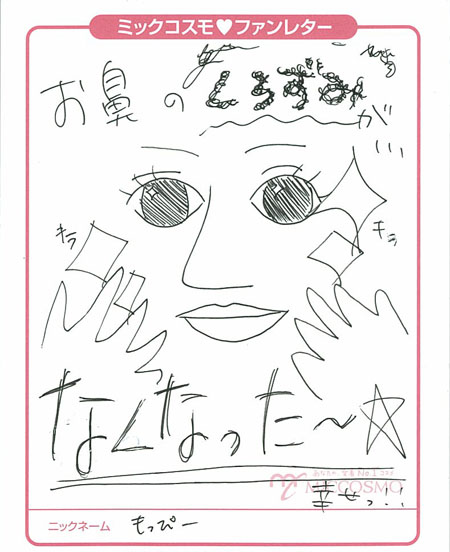 ミックコスモ♥ファンレター
お鼻の くろずみ が...
キラ
キラ
なくなった〜☆
MICCOSMO
幸せっ!!
ニックネーム もっぴー